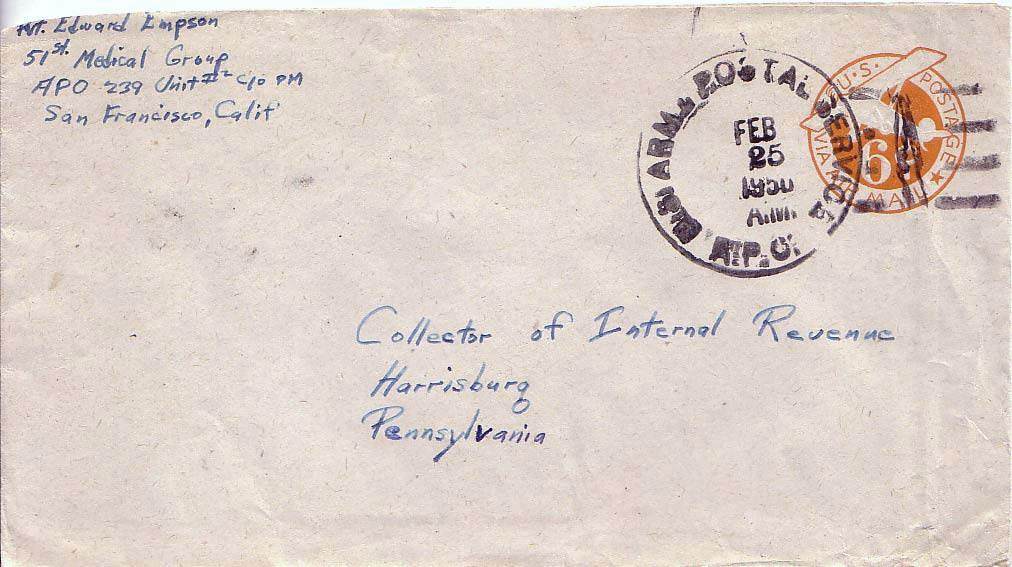 Pvt. Edward Empson
51st. Medical Group
APO 239 Unit #2 c/o PM
San Francisco, Calif
ARMY POSTAL SERVICE
FEB
25
1950
A.M.
A.P.O.
U.S. POSTAGE
6
VIA AIR MAIL
Collector of Internal Revenue
Harrisburg
Pennsylvania